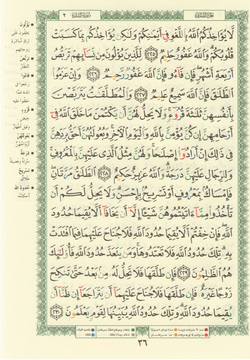 لَّا يُؤَاخِذُكُمُ ٱللَّهُ بِٱللَّغْوِ فِىٓ أَيْمَٰنِكُمْ وَلَٰكِن يُؤَاخِذُكُم بِمَا كَسَبَتْ
قُلُوبُكُمْ وَٱللَّهُ غَفُورٌ حَلِيمٌ ٢٢٥ لِّلَّذِينَ يُؤْلُونَ مِن نِّسَآئِهِمْ تَرَبُّصُ
أَرْبَعَةِ أَشْهُرٍ فَإِن فَآءُو فَإِنَّ ٱللَّهَ غَفُورٌ رَّحِيمٌ ٢٢٦ وَإِنْ عَزَمُوا۟
ٱلطَّلَٰقَ فَإِنَّ ٱللَّهَ سَمِيعٌ عَلِيمٌ ٢٢٧ وَٱلْمُطَلَّقَٰتُ يَتَرَبَّصْنَ
بِأَنفُسِهِنَّ ثَلَٰثَةَ قُرُوٓءٍ وَلَا يَحِلُّ لَهُنَّ أَن يَكْتُمْنَ مَا خَلَقَ ٱللَّهُ فِىٓ
أَرْحَامِهِنَّ إِن كُنَّ يُؤْمِنَّ بِٱللَّهِ وَٱلْيَوْمِ ٱلْءَاخِرِ وَبُعُولَتُهُنَّ أَحَقُّ بِرَدِّهِنَّ
فِى ذَٰلِكَ إِنْ أَرَادُوٓا۟ إِصْلَٰحًا وَلَهُنَّ مِثْلُ ٱلَّذِى عَلَيْهِنَّ بِٱلْمَعْرُوفِ
وَلِلرِّجَالِ عَلَيْهِنَّ دَرَجَةٌ وَٱللَّهُ عَزِيزٌ حَكِيمٌ ٢٢٨ ٱلطَّلَٰقُ مَرَّتَانِ
فَإِمْسَاكٌۢ بِمَعْرُوفٍ أَوْ تَسْرِيحٌۢ بِإِحْسَٰنٍ وَلَا يَحِلُّ لَكُمْ أَن
تَأْخُذُوا۟ مِمَّآ ءَاتَيْتُمُوهُنَّ شَيْـًٔا إِلَّآ أَن يَخَافَآ أَلَّا يُقِيمَا حُدُودَ
ٱللَّهِ فَإِنْ خِفْتُمْ أَلَّا يُقِيمَا حُدُودَ ٱللَّهِ فَلَا جُنَاحَ عَلَيْهِمَا فِيمَا ٱفْتَدَتْ
بِهِۦ تِلْكَ حُدُودُ ٱللَّهِ فَلَا تَعْتَدُوهَا وَمَن يَتَعَدَّ حُدُودَ ٱللَّهِ فَأُو۟لَٰٓئِكَ
هُمُ ٱلظَّٰلِمُونَ ٢٢٩ فَإِن طَلَّقَهَا فَلَا تَحِلُّ لَهُۥ مِنۢ بَعْدُ حَتَّىٰ تَنكِحَ
زَوْجًا غَيْرَهُۥ فَإِن طَلَّقَهَا فَلَا جُنَاحَ عَلَيْهِمَآ أَن يَتَرَاجَعَآ إِن ظَنَّآ أَن
يُقِيمَا حُدُودَ ٱللَّهِ وَتِلْكَ حُدُودُ ٱللَّهِ يُبَيِّنُهَا لِقَوْمٍ يَعْلَمُونَ ٢٣٠
٣٦